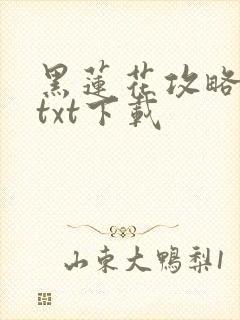 黑蓮花攻略
txt下載
山東大鴨梨1